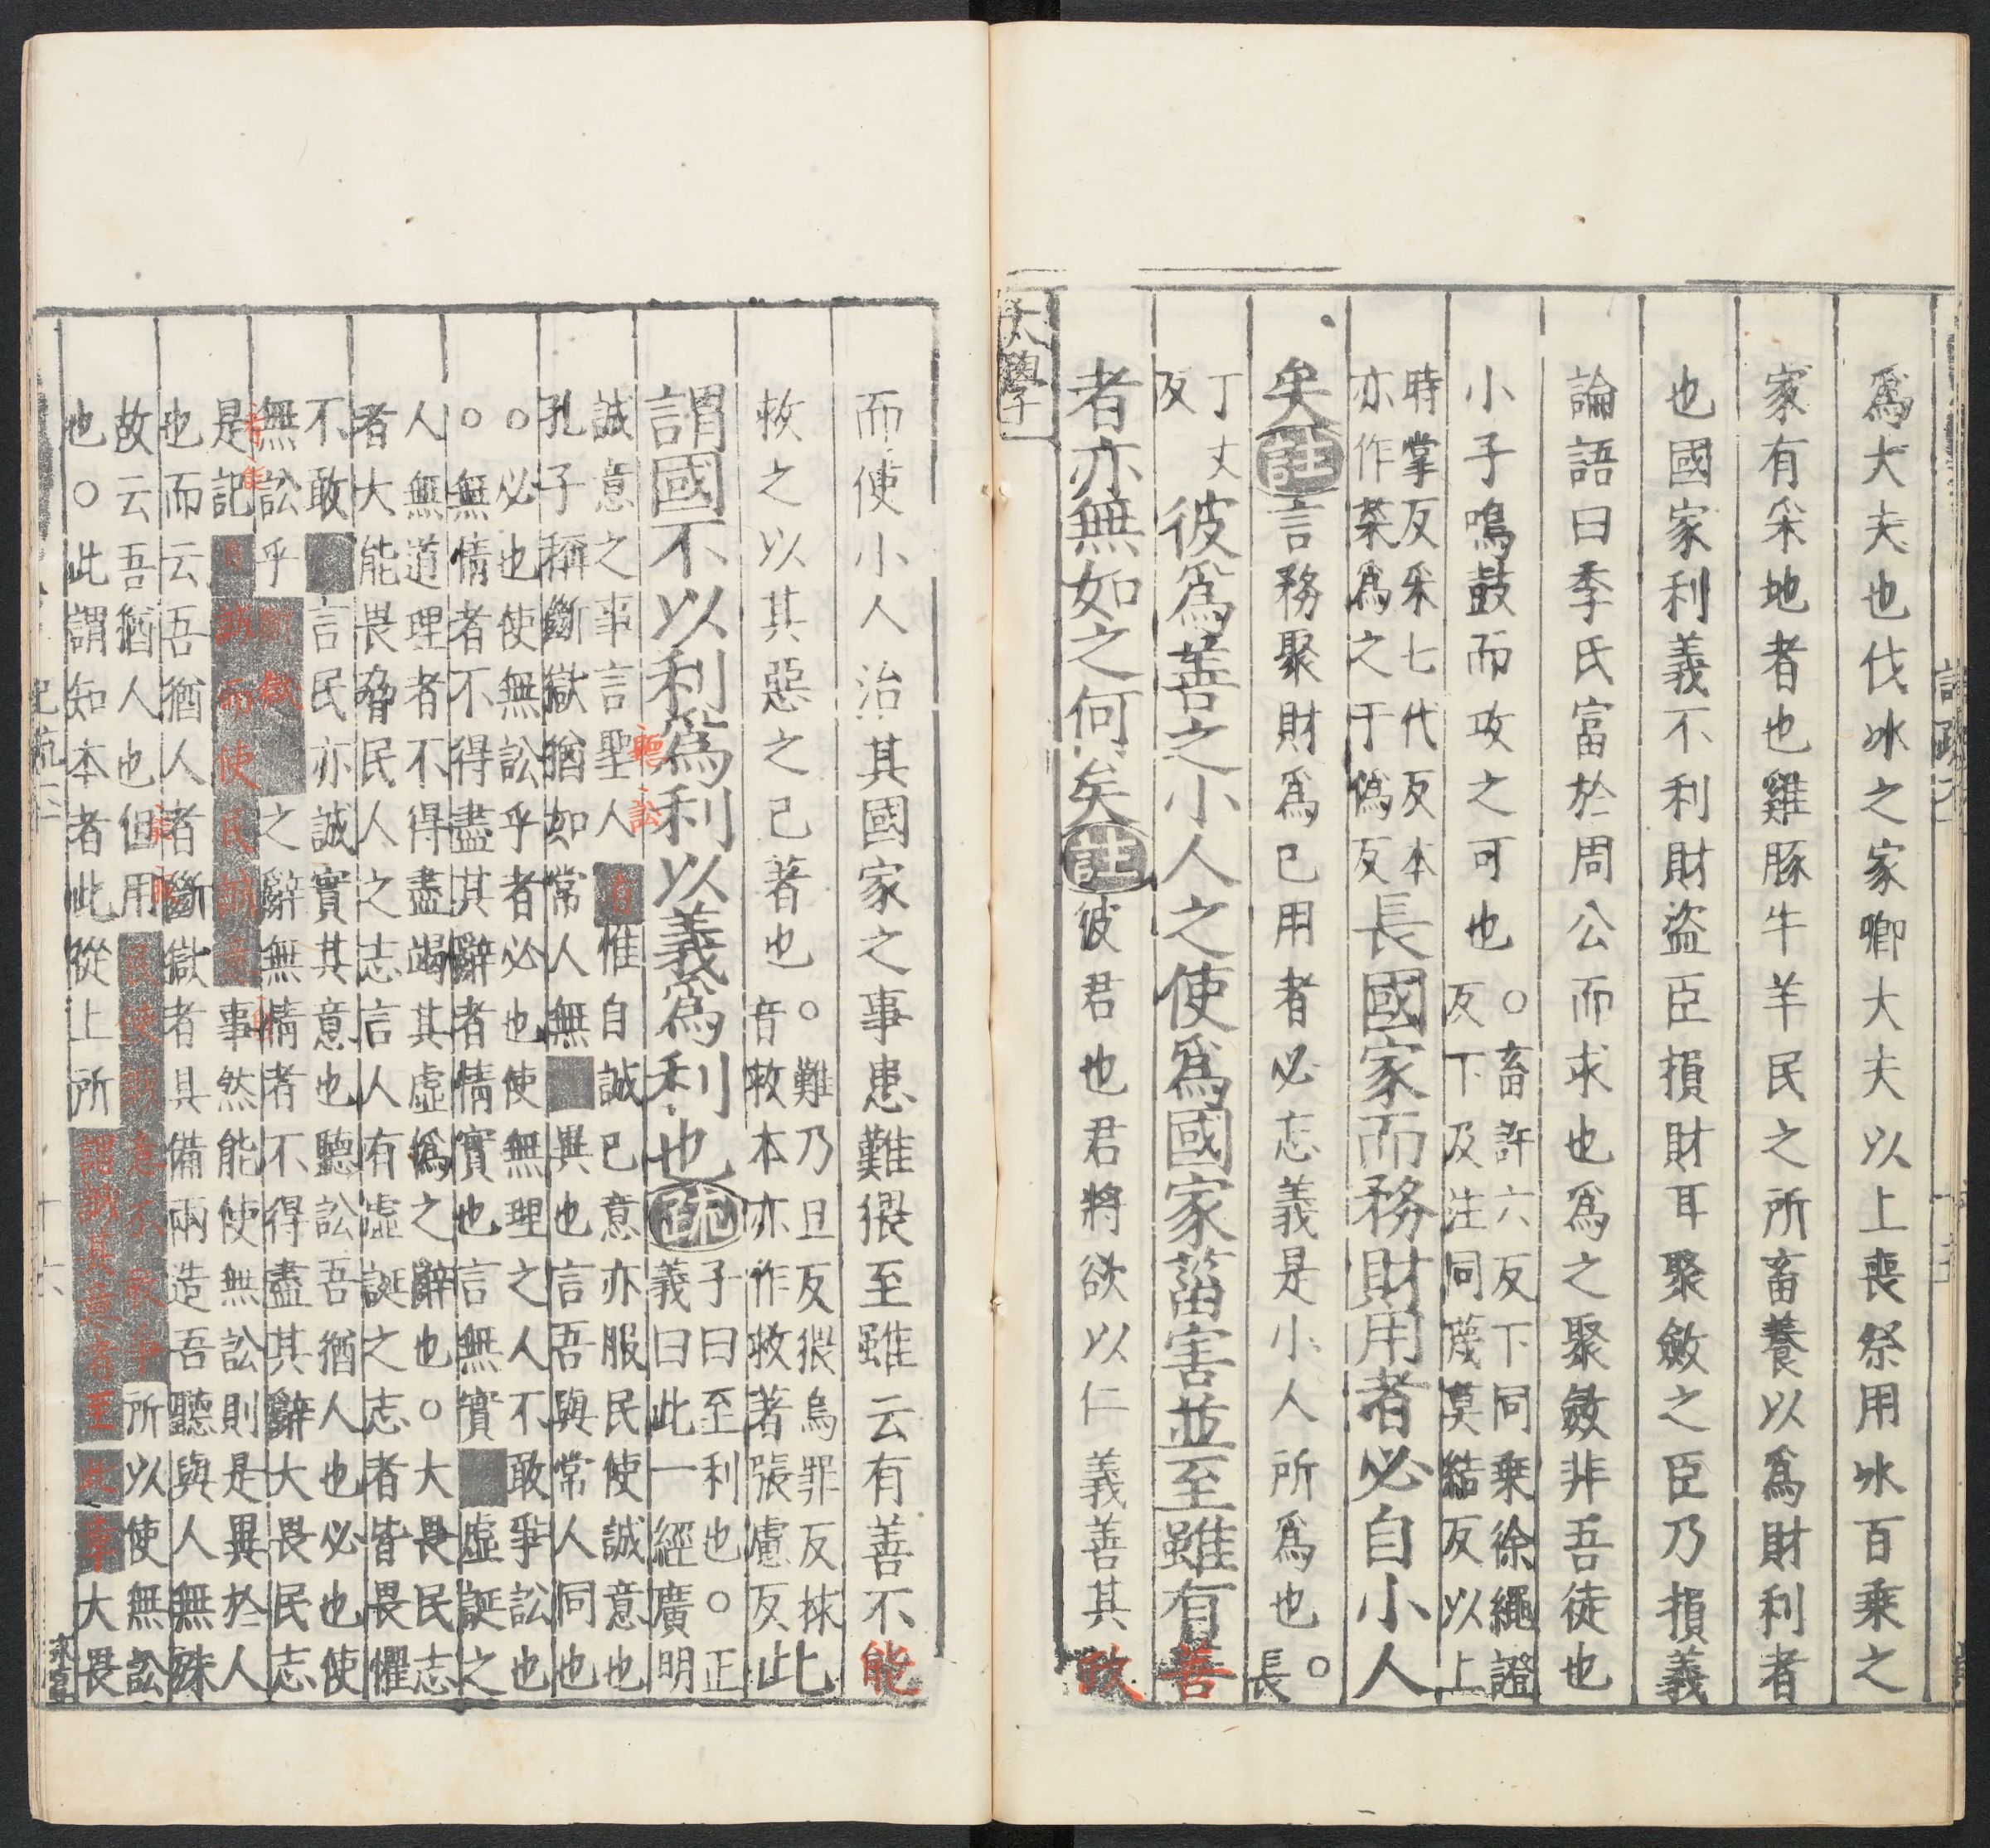 爲大夫也伐冰之家卿大夫以上喪祭用冰百乘之
家有采地者也雞豚牛羊民之所畜養以爲財利者
也國家利義不利財盜臣損財耳聚斂之臣乃損義
論語曰季氏富於周公而求也爲之聚斂非吾徒也
小子鳴鼓而攻之可也○畜許六反下同乗徐繩證
反下及注同蔑莫結反以上
時掌反采七代反本
亦作菜爲之于僞反長國家而務財用者必自小人
矣註言務聚財爲已用者必忘義是小人所爲也○
長
丁丈
反彼爲善之小人之使爲國家菑害並至雖有善
者亦無如之何矣註彼君也君將欲以仁義善其政
大學
而使小人治其國家之事患難猥至雖云有善不能
救之以其惡之已著也○難乃旦反猥烏罪反捄
音救本亦作救著張慮反此
謂國不以利爲利以義爲利也疏子曰至利也○正
義曰此一經廣明
誠意之事言聖人者惟自誠已意亦服民使誠意也
孔子稱斷獄猶如常人無異也言吾與常人同也
聽訟
○必也使無訟乎者必也使無理之人不敢爭訟也
○無情者不得盡其辭者情實也言無實虛誕之
人無道理者不得盡竭其虛僞之辭也○大畏民志
者大能畏脅民人之志言人有虛誕之志者皆畏懼
不敢言民亦誠實其意也聽訟吾猶人也必也使
無訟乎斷獄之辭無情者不得盡其辭大畏民志
是記自誠而使民誠意事然能使無訟則是異於人
也而云吾猶人者斷獄者具備兩造吾聽與人無殊
故云吾猶人也但用民使誠意不敢爭所以使無訟
也○此謂知本者此從上所謂誠其意者至此事大畏